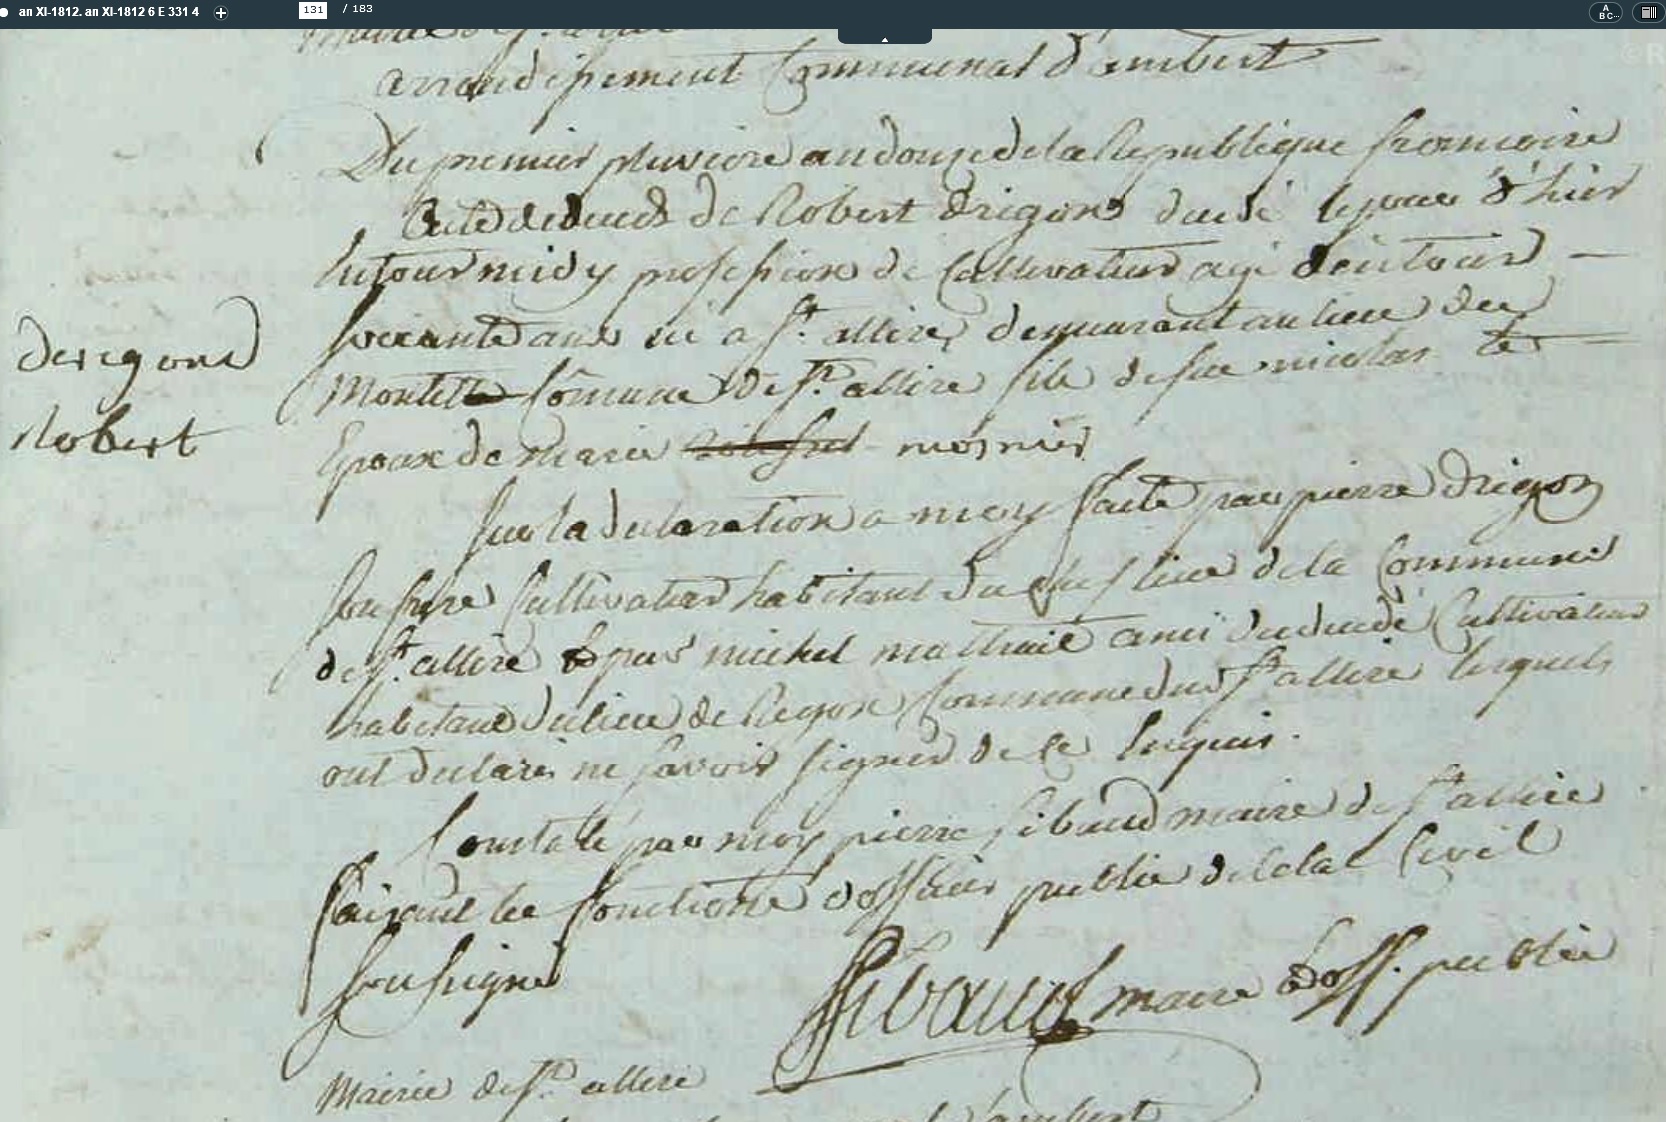 an XI-1812. an XI-1812 6 E 331 4
131 / 183
A BC...
arrondissement Communal d'ambert
Du premier pluviose an douze de la Republique francoise
acte de deces de Robert Drigon decedé le jour d'hier
sur profession de Cultivateur agé d'environ
soixante ans né a St. allire demeurant au lieu du
Montel Comune de St. allire fils de feu nicolas et
Epoux de marie mosnier
derigond
Robert
Sur la declaration a moy faite par pierre Drigon
son frere Cultivateur habitant du chef lieu de la Commune
de St. allire & par michel ami du decedé Cultivateur
habitant du lieu de Commune du St allire lesquels
ont declaré ne savoir signer de ce requis.
Constaté par moy pierre Sibaud maire de St allire
faisant les fonctions d'officier public de l'etat Civil
soussigné
Sibaud maire & off. public
Mairie de St. allire
d'ambert